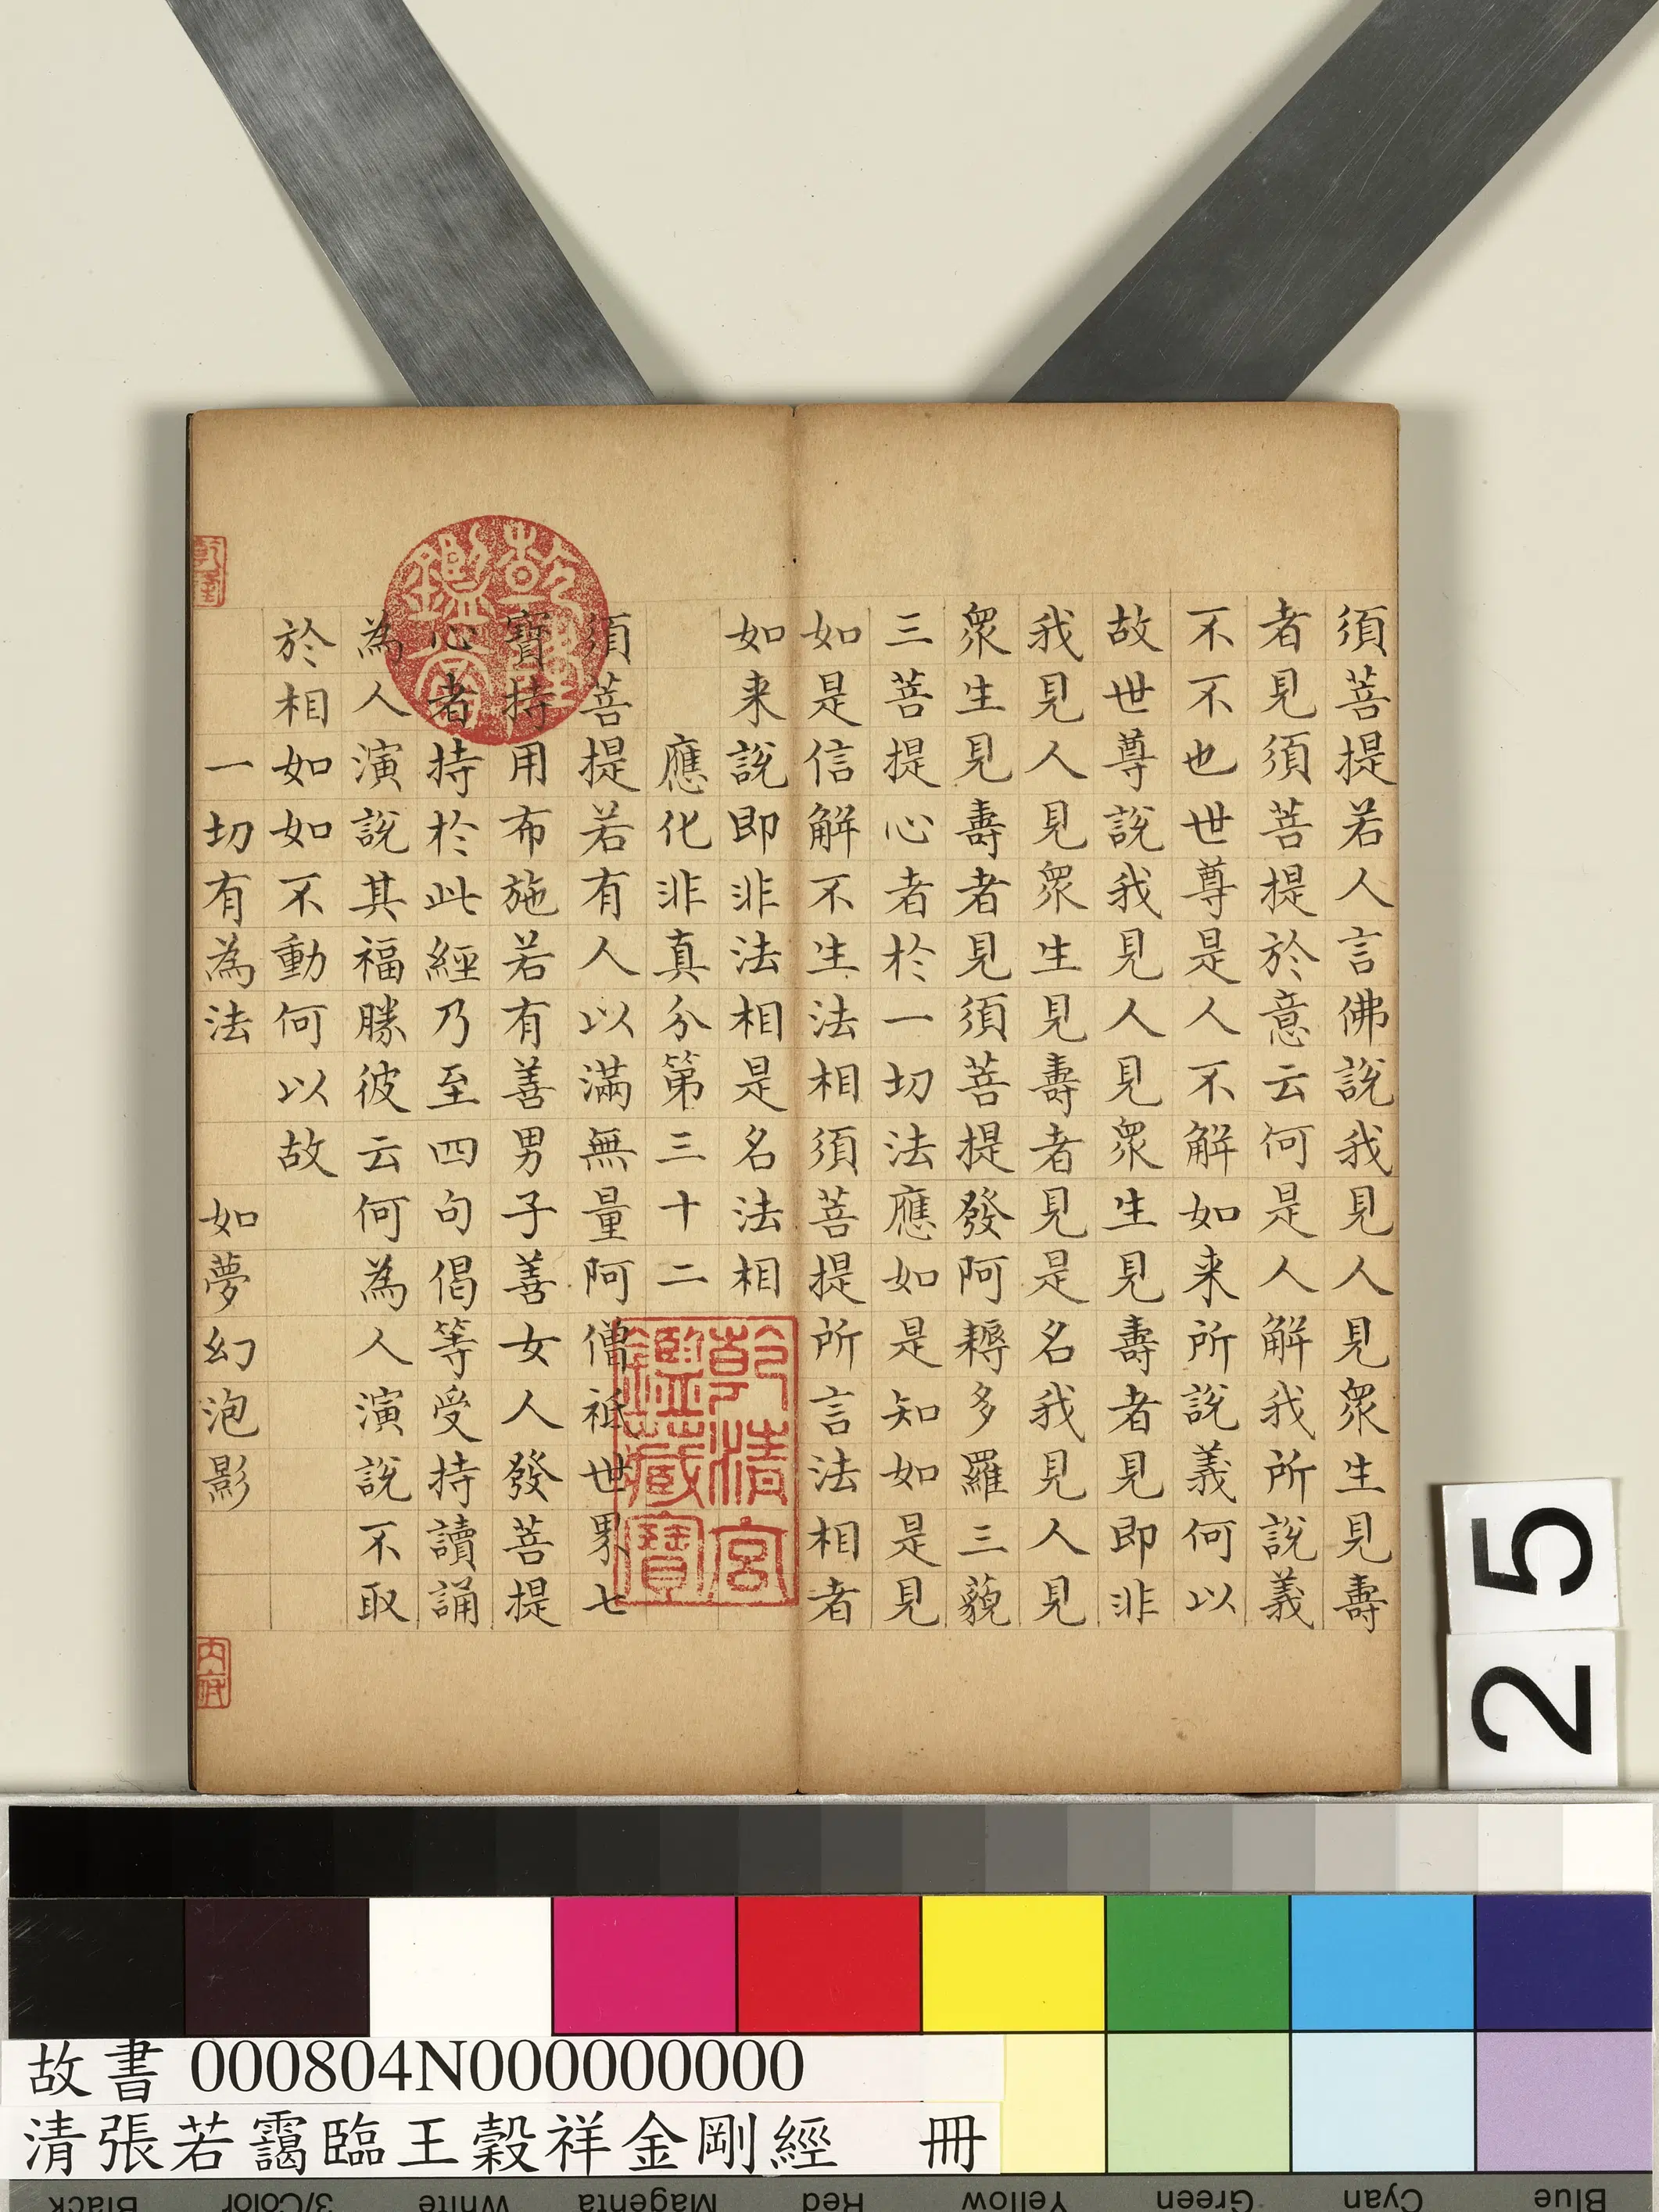 須菩提若人言佛說我見人見眾生見壽
者見須菩提於意云何是人解我所說義
不不也世尊是人不解如来所說義何以
故世尊說我見人見眾生見壽者見即非
我見人見眾生見壽者見是名我見人見
眾生見壽者見須菩提發阿耨多羅三藐
三菩提心者於一切法應如是知如是見
如是信解不生法相須菩提所言法相者
如来說即非法相是名法相
應化非真分第三十二
須菩提若有人以滿無量阿僧祇世界七
寶持用布施若有善男子善女人發菩提
心者持於此經乃至四句偈等受持讀誦
為人演說其福勝彼云何為人演說不取
於相如如不動何以故
一切有為法 如夢幻泡影
乾隆鑑賞
乾清宮鑑藏寶
乾隆
内府
25
故書 000804N000000000
清張若靄臨王穀祥金剛經 冊
Black 3/Color White Magenta Red Yellow Green Cyan Blue